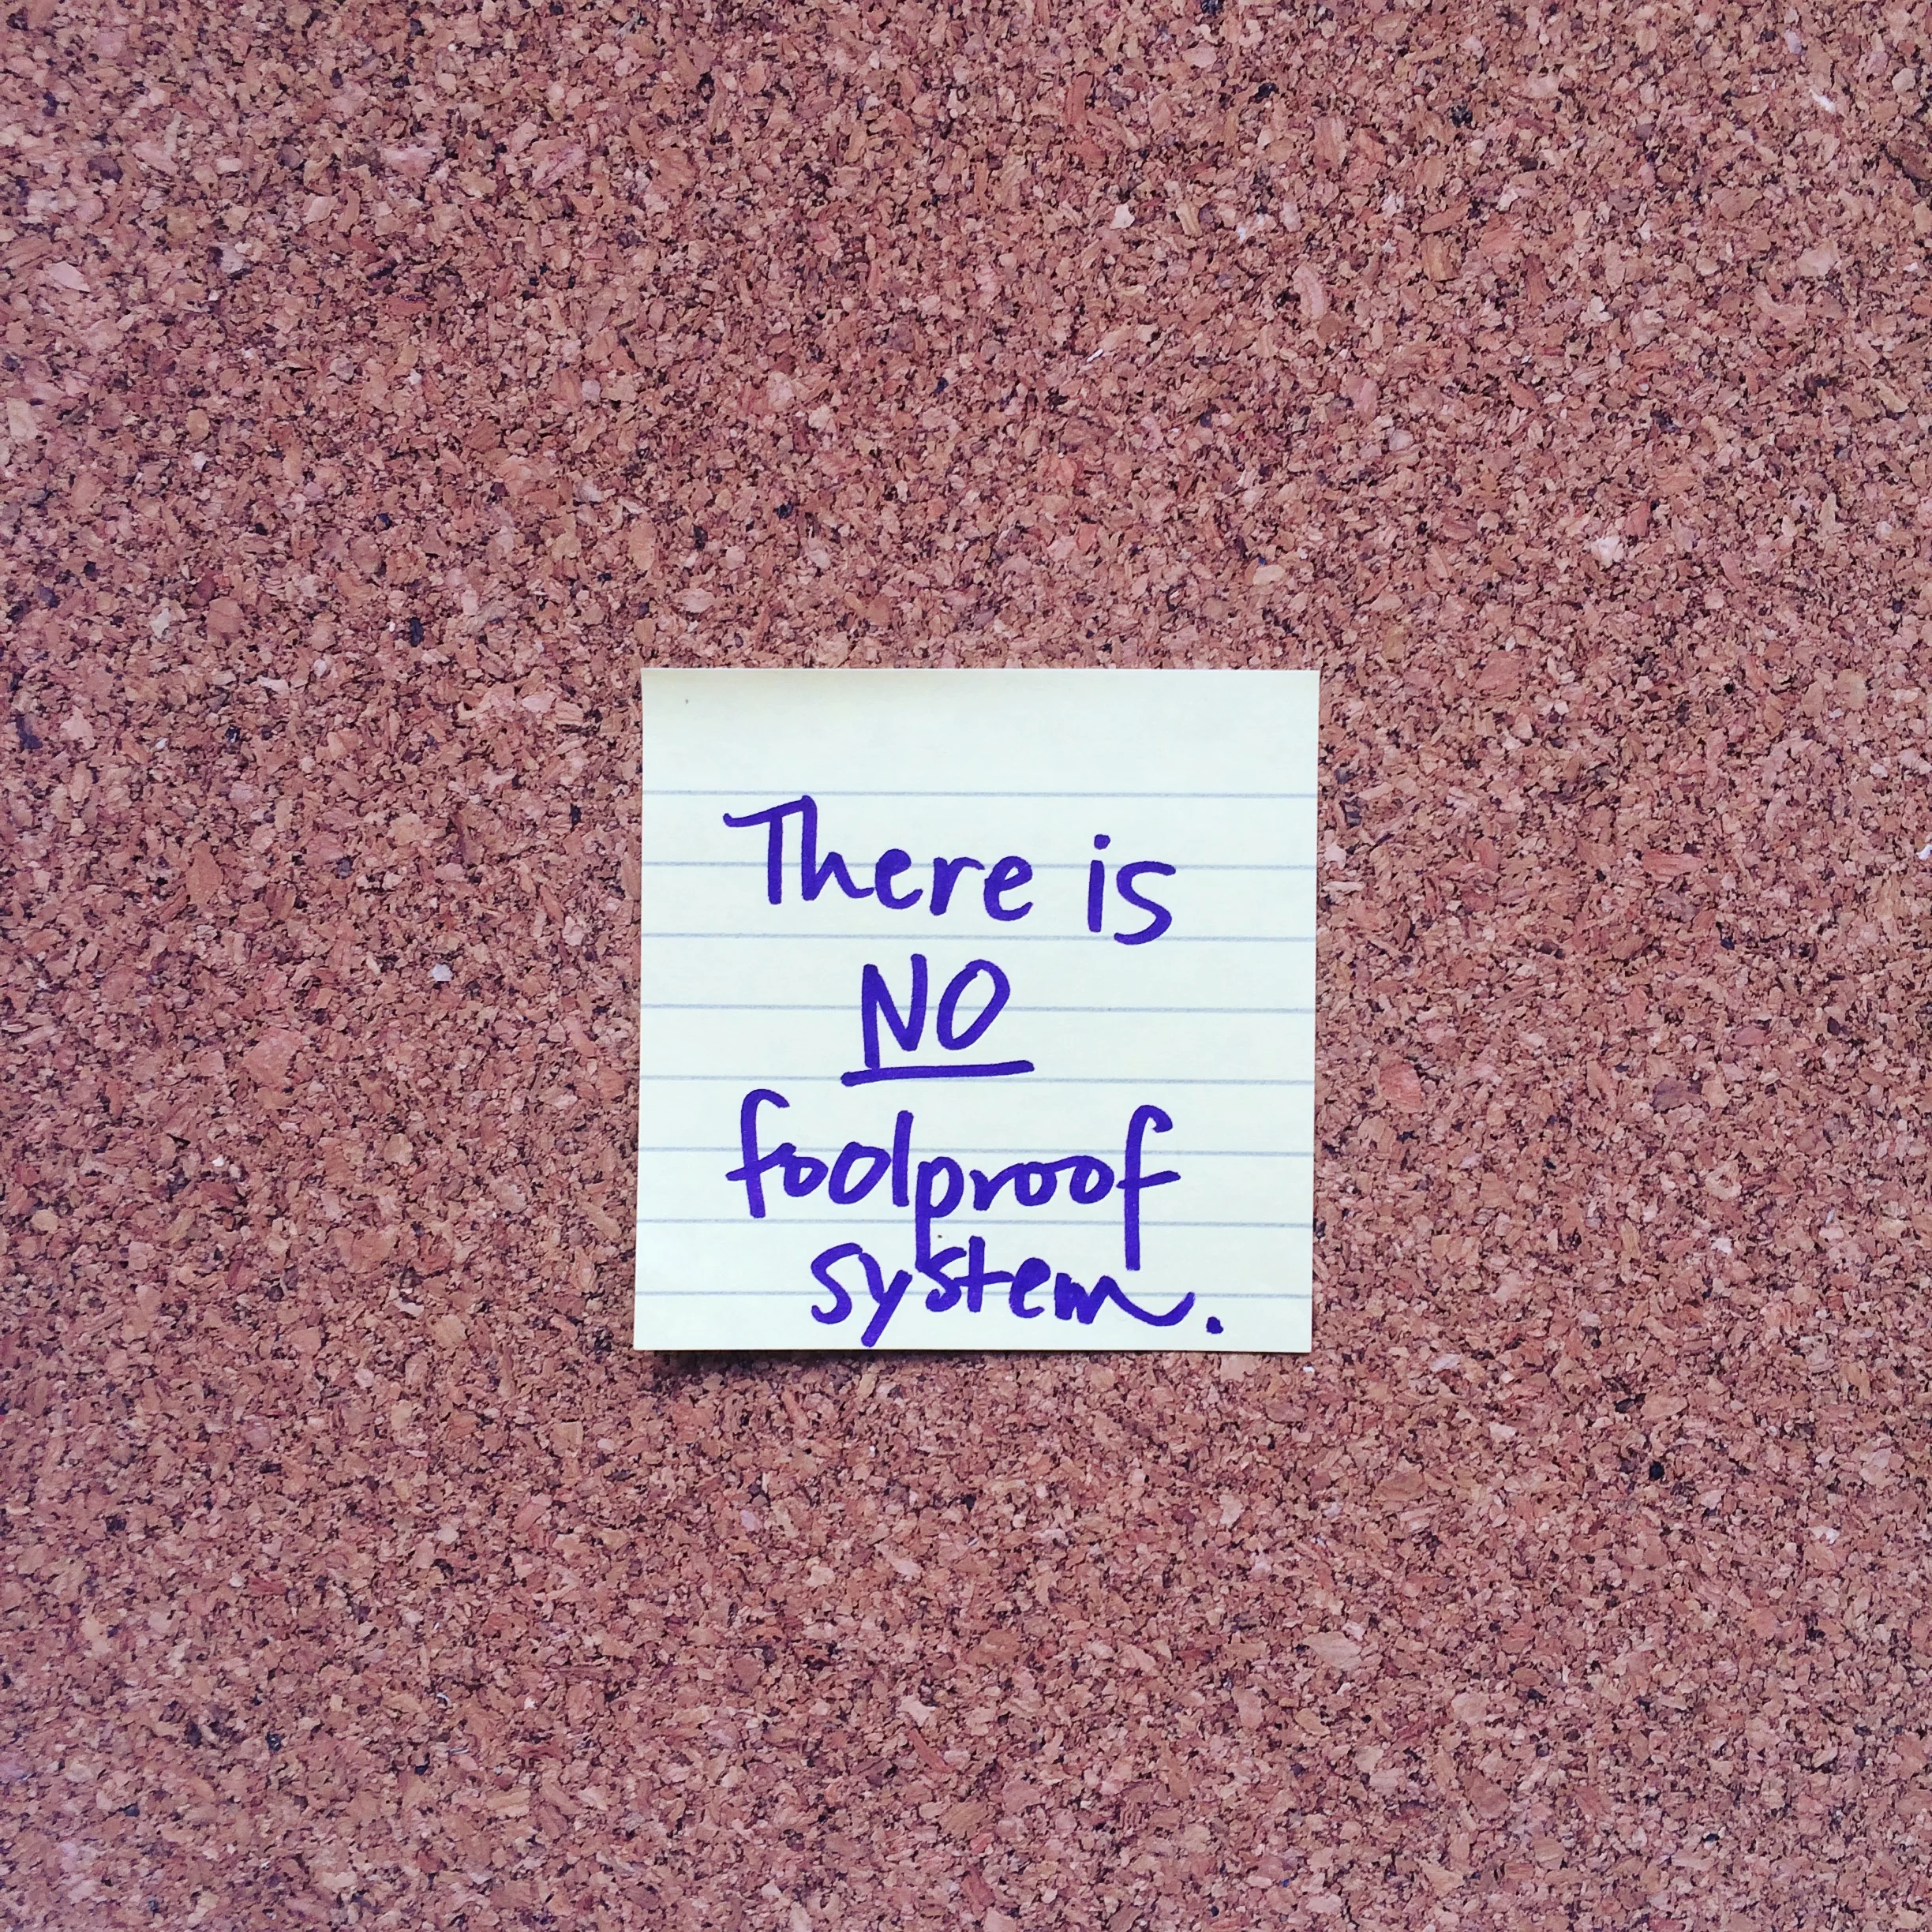 There is
NO
foolproof
system.